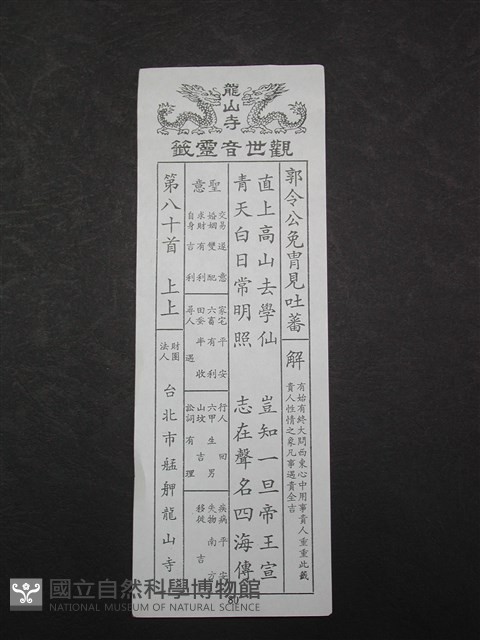 龍山寺
觀世音靈籤
郭令公免冑見吐蕃
解
有始有終大開西東心中用事貴人重重此籤
貴人性情之象凡事遇貴全吉
直上高山去學仙 豈知一旦帝王宣
青天白日常明照 志在聲名四海傳
聖意
交易遂意
婚姻雙配
求財有利
自身吉利
家宅平安
六畜有利
田蚕半收
尋人遇
行人回
六甲生男
山墳吉
訟詞有理
疾病平安
失物南方
移徙吉
第八十首 上上
財團法人
台北市艋舺龍山寺
80
國立自然科學博物館
NATIONAL MUSEUM OF NATURAL SCIENCE